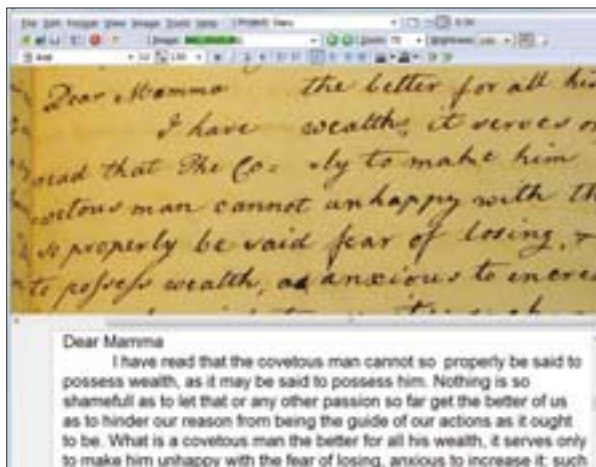 File Edit Format View Image Tools Help Project: Diary
Image: Zoom: 75 Brightness:
Arial 12
Dear Mamma
I have
read that The Co=
vetous man cannot
so properly be said
to possess wealth, as
the better for all his
wealth, it serves on
ly to make him
unhappy with th
fear of losing, +
anxious to increa
Dear Mamma
I have read that the covetous man cannot so properly be said to
possess wealth, as it may be said to possess him. Nothing is so
shamefull as to let that or any other passion so far get the better of us
as to hinder our reason from being the guide of our actions as it ought
to be. What is a covetous man the better for all his wealth, it serves only
to make him unhappy with the fear of losing, anxious to increase it: such